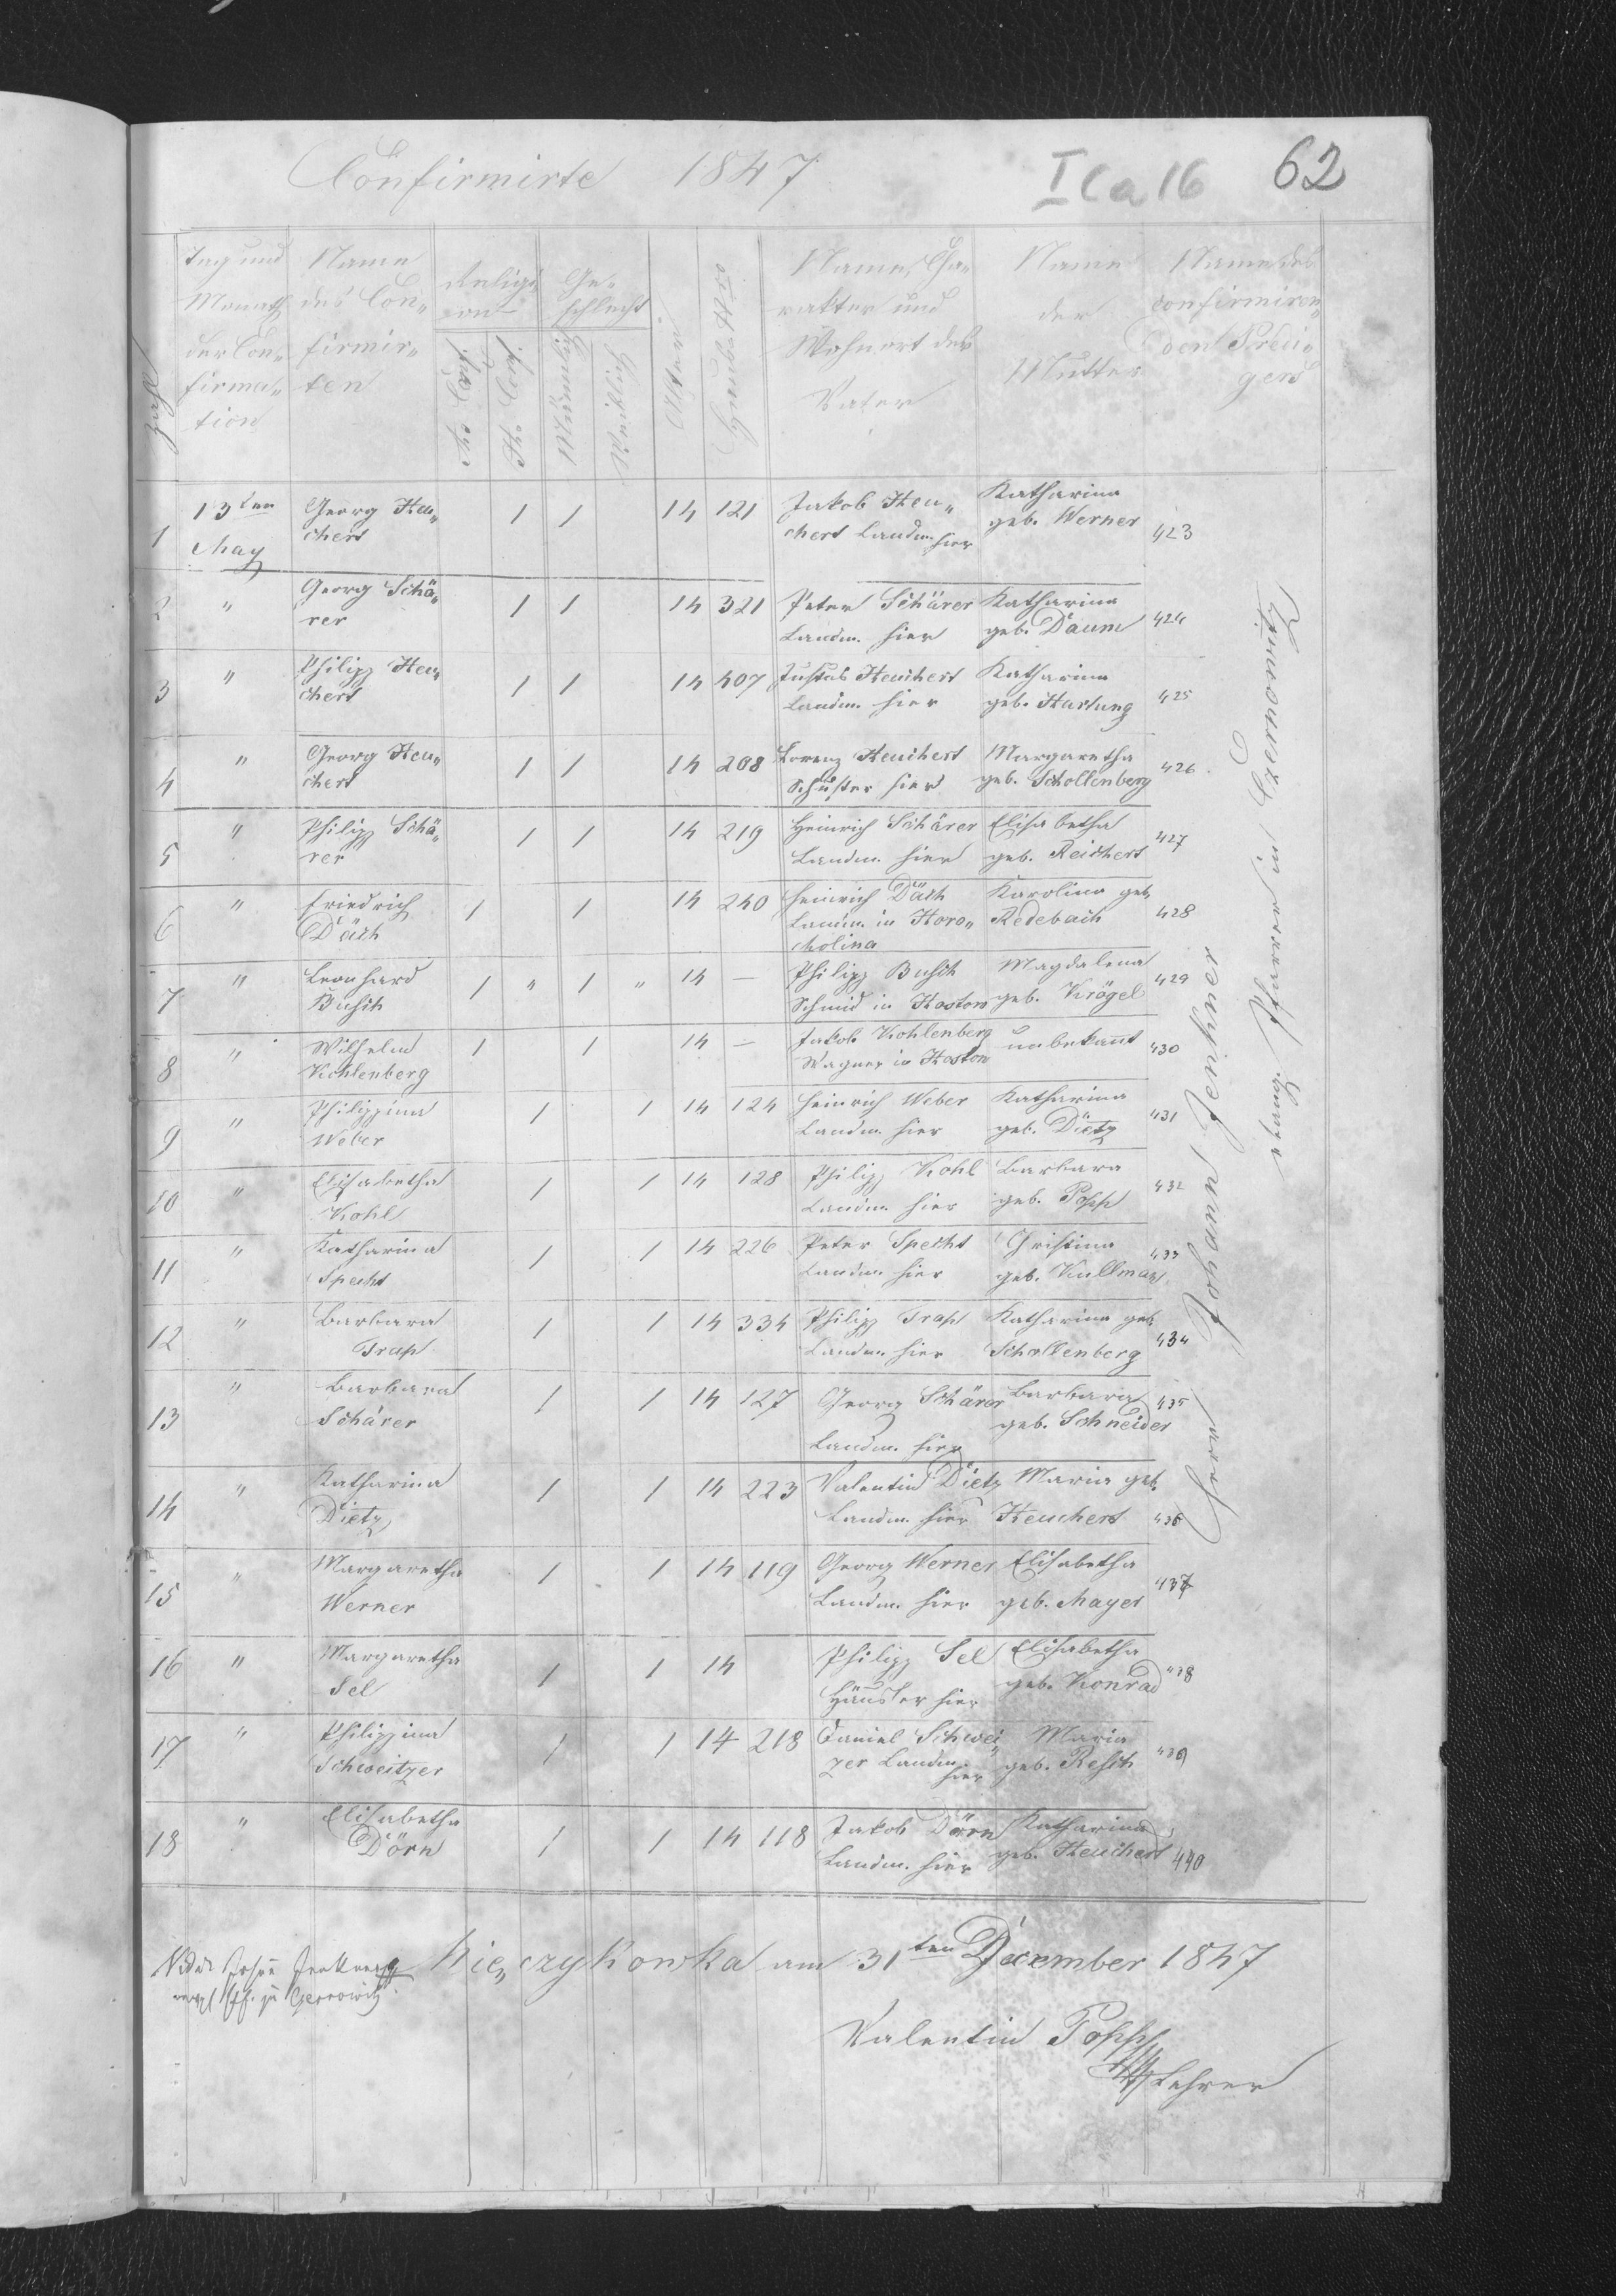 Confirmirte 1847
I C a 16 62
Zahl
Tag und Monath der Confirmation
Name des Confirmirten
Religion
A. Conf.
H. Conf.
Geschlecht
Männlich
Weiblich
Alter
Haus Nro
Name, Charakter und Wohnort des Vaters
Name der Mutter
Name des confirmirenden Predigers
1 13ten May Georg Heu„ 1 1 14 121 Jakob Heu„ Katharina
chert chert Landm. hier geb. Werner 423
2 " Georg Schä„ 1 1 14 321 Peter Schärer Katharina
rer Landm. hier geb. Daum 424
3 " Philipp Heu„ 1 1 14 407 Justus Heuchert Katharina
chert Landm. hier geb. Hartung 425
4 " Georg Heu„ 1 1 14 208 Lorenz Heuchert Margaretha
chert Schuster hier geb. Schollenberg 426
5 " Philipp Schä„ 1 1 14 219 Heinrich Schärer Elisabetha
rer Landm. hier geb. Reichert 427
6 " Friedrich 1 1 14 240 Heinrich Däch Karolina geb.
Däch Landm. in Horo„ Redebach 428
cholina
7 " Leonhard 1 " 1 " 14 — Philipp Busch Magdalena
Busch Schmid in Kostow geb. Krögel 429
8 " Wilhelm 1 1 14 — Jakob Kohlenberg unbekannt 430
Kohlenberg Wagner in Kostow
9 " Philippina 1 1 14 124 Heinrich Weber Katharina
Weber Landm. hier geb. Dietz 431
10 " Elisabetha 1 1 14 128 Philipp Kohl Barbara
Kohl Landm. hier geb. Popp 432
11 " Katharina 1 1 14 226 Peter Specht Christina
Specht Landm. hier geb. Kullman 433
12 " Barbara 1 1 14 334 Philipp Trap Katharina geb.
Trap Landm. hier Schollenberg 434
13 " Barbara 1 1 14 127 Georg Schärer Barbara 435
Schärer geb. Schneider
Landm. hier
14 " Katharina 1 1 14 223 Valentin Dietz Maria geb.
Dietz Landm. hier Heuchert 436
15 " Margaretha 1 1 14 119 Georg Werner Elisabetha
Werner Landm. hier geb. Mayer 437
16 " Margaretha 1 1 14 Philipp Sel Elisabetha
Sel Häusler hier geb. Konrad 438
17 " Philippina 1 1 14 218 Daniel Schwei„ Maria
Schweitzer zer Landm. hier geb. Resch 439
18 " Elisabetha 1 1 14 118 Jakob Dörn Katharina
Dörn Landm. hier geb. Heuchert 440
Herr Johann Jenkner
evang. Pfarrer in Czernowitz
Hie„czykowka am 31ten December 1847
Valentin Popp
Lehrer